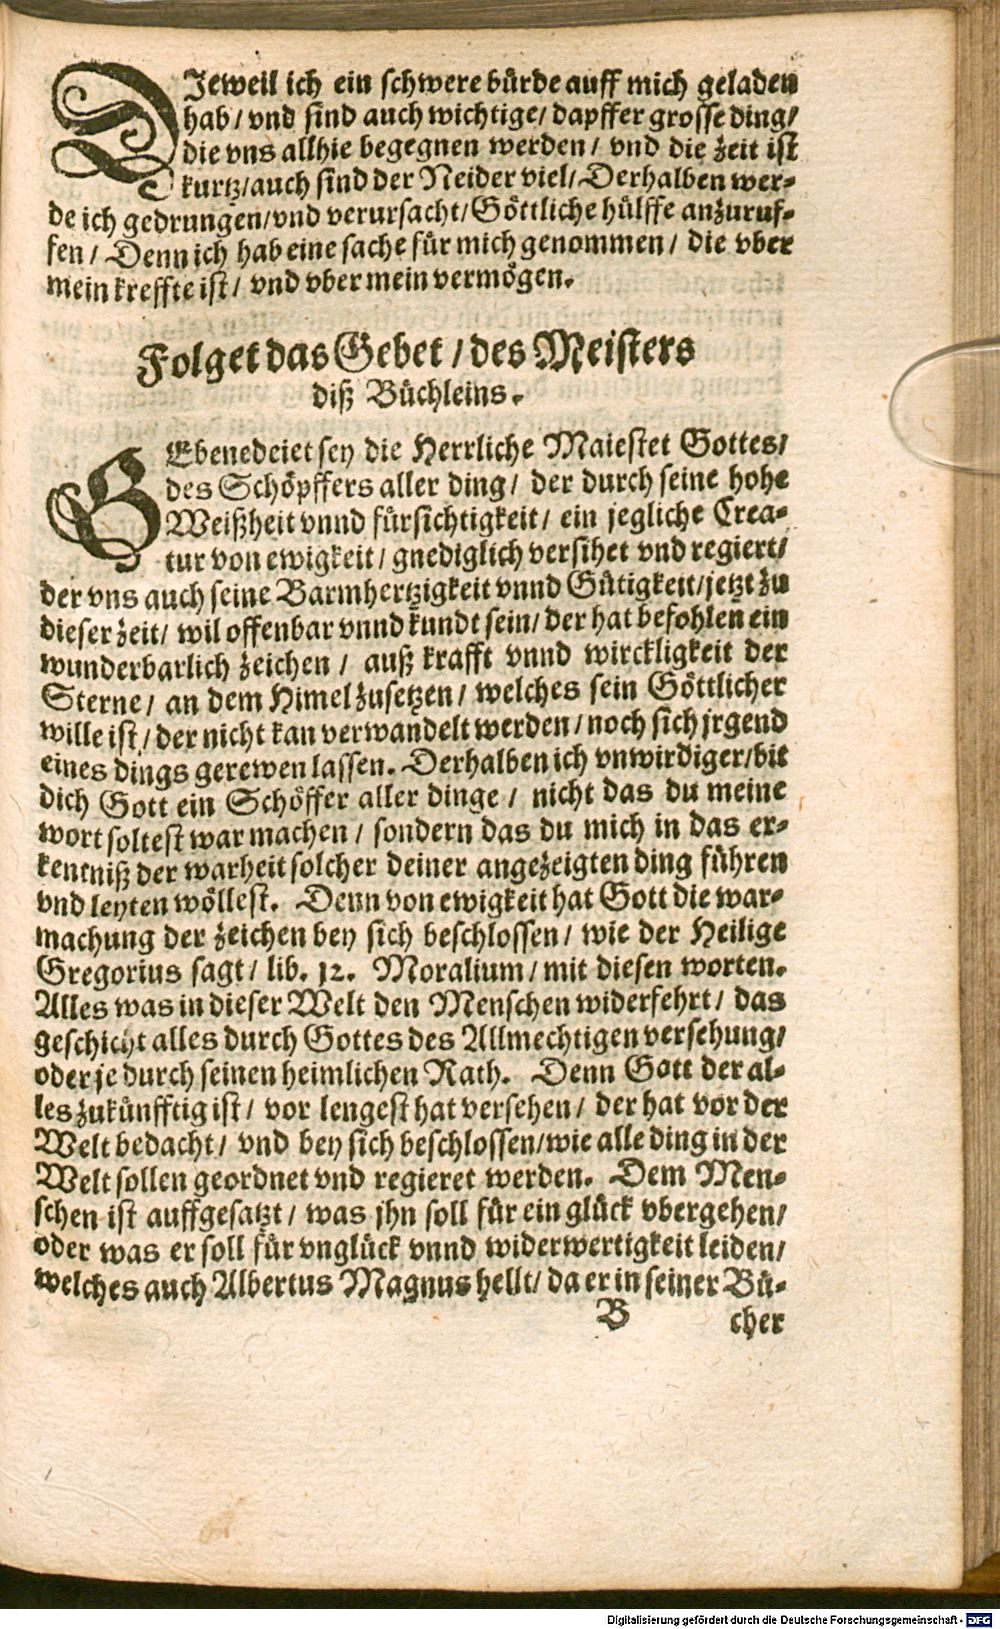 DJeweil ich ein schwere bürde auff mich geladen
hab / vnd sind auch wichtige / dapffer grosse ding /
die vns allhie begegnen werden / vnd die zeit ist
kurtz / auch sind der Neider viel / Derhalben wer-
de ich gedrungen / vnd verursacht / Göttliche hülffe anzuruf-
fen / Denn ich hab eine sache für mich genommen / die vber
mein kreffte ist / vnd vber mein vermögen.
Folget das Gebet / des Meisters
diß Büchleins.
GEbenedeiet sey die Herrliche Maiestet Gottes /
des Schöpffers aller ding / der durch seine hohe
Weißheit vnnd fürsichtigkeit / ein jegliche Crea-
tur von ewigkeit / gnediglich versihet vnd regiert /
der vns auch seine Barmhertzigkeit vnnd Gütigkeit / jetzt zu
dieser zeit / wil offenbar vnnd kundt sein / der hat befohlen ein
wunderbarlich zeichen / auß krafft vnnd wirckligkeit der
Sterne / an dem Himel zusetzen / welches sein Göttlicher
wille ist / der nicht kan verwandelt werden / noch sich jrgend
eines dings gerewen lassen. Derhalben ich vnwirdiger / bit
dich Gott ein Schöffer aller dinge / nicht das du meine
wort soltest war machen / sondern das du mich in das er-
kentniß der warheit solcher deiner angezeigten ding führen
vnd leyten wöllest. Denn von ewigkeit hat Gott die war-
machung der zeichen bey sich beschlossen / wie der Heilige
Gregorius sagt / lib. 12. Moralium / mit diesen worten.
Alles was in dieser Welt den Menschen widerfehrt / das
geschicht alles durch Gottes des Allmechtigen versehung /
oder je durch seinen heimlichen Rath. Denn Gott der al-
les zukünfftig ist / vor lengest hat versehen / der hat vor der
Welt bedacht / vnd bey sich beschlossen / wie alle ding in der
Welt sollen geordnet vnd regieret werden. Dem Men-
schen ist auffgesatzt / was jhn soll für ein glück vbergehen /
oder was er soll für vnglück vnnd widerwertigkeit leiden /
welches auch Albertus Magnus hellt / da er in seiner Bü-
B cher
Digitalisierung gefördert durch die Deutsche Forschungsgemeinschaft - DFG